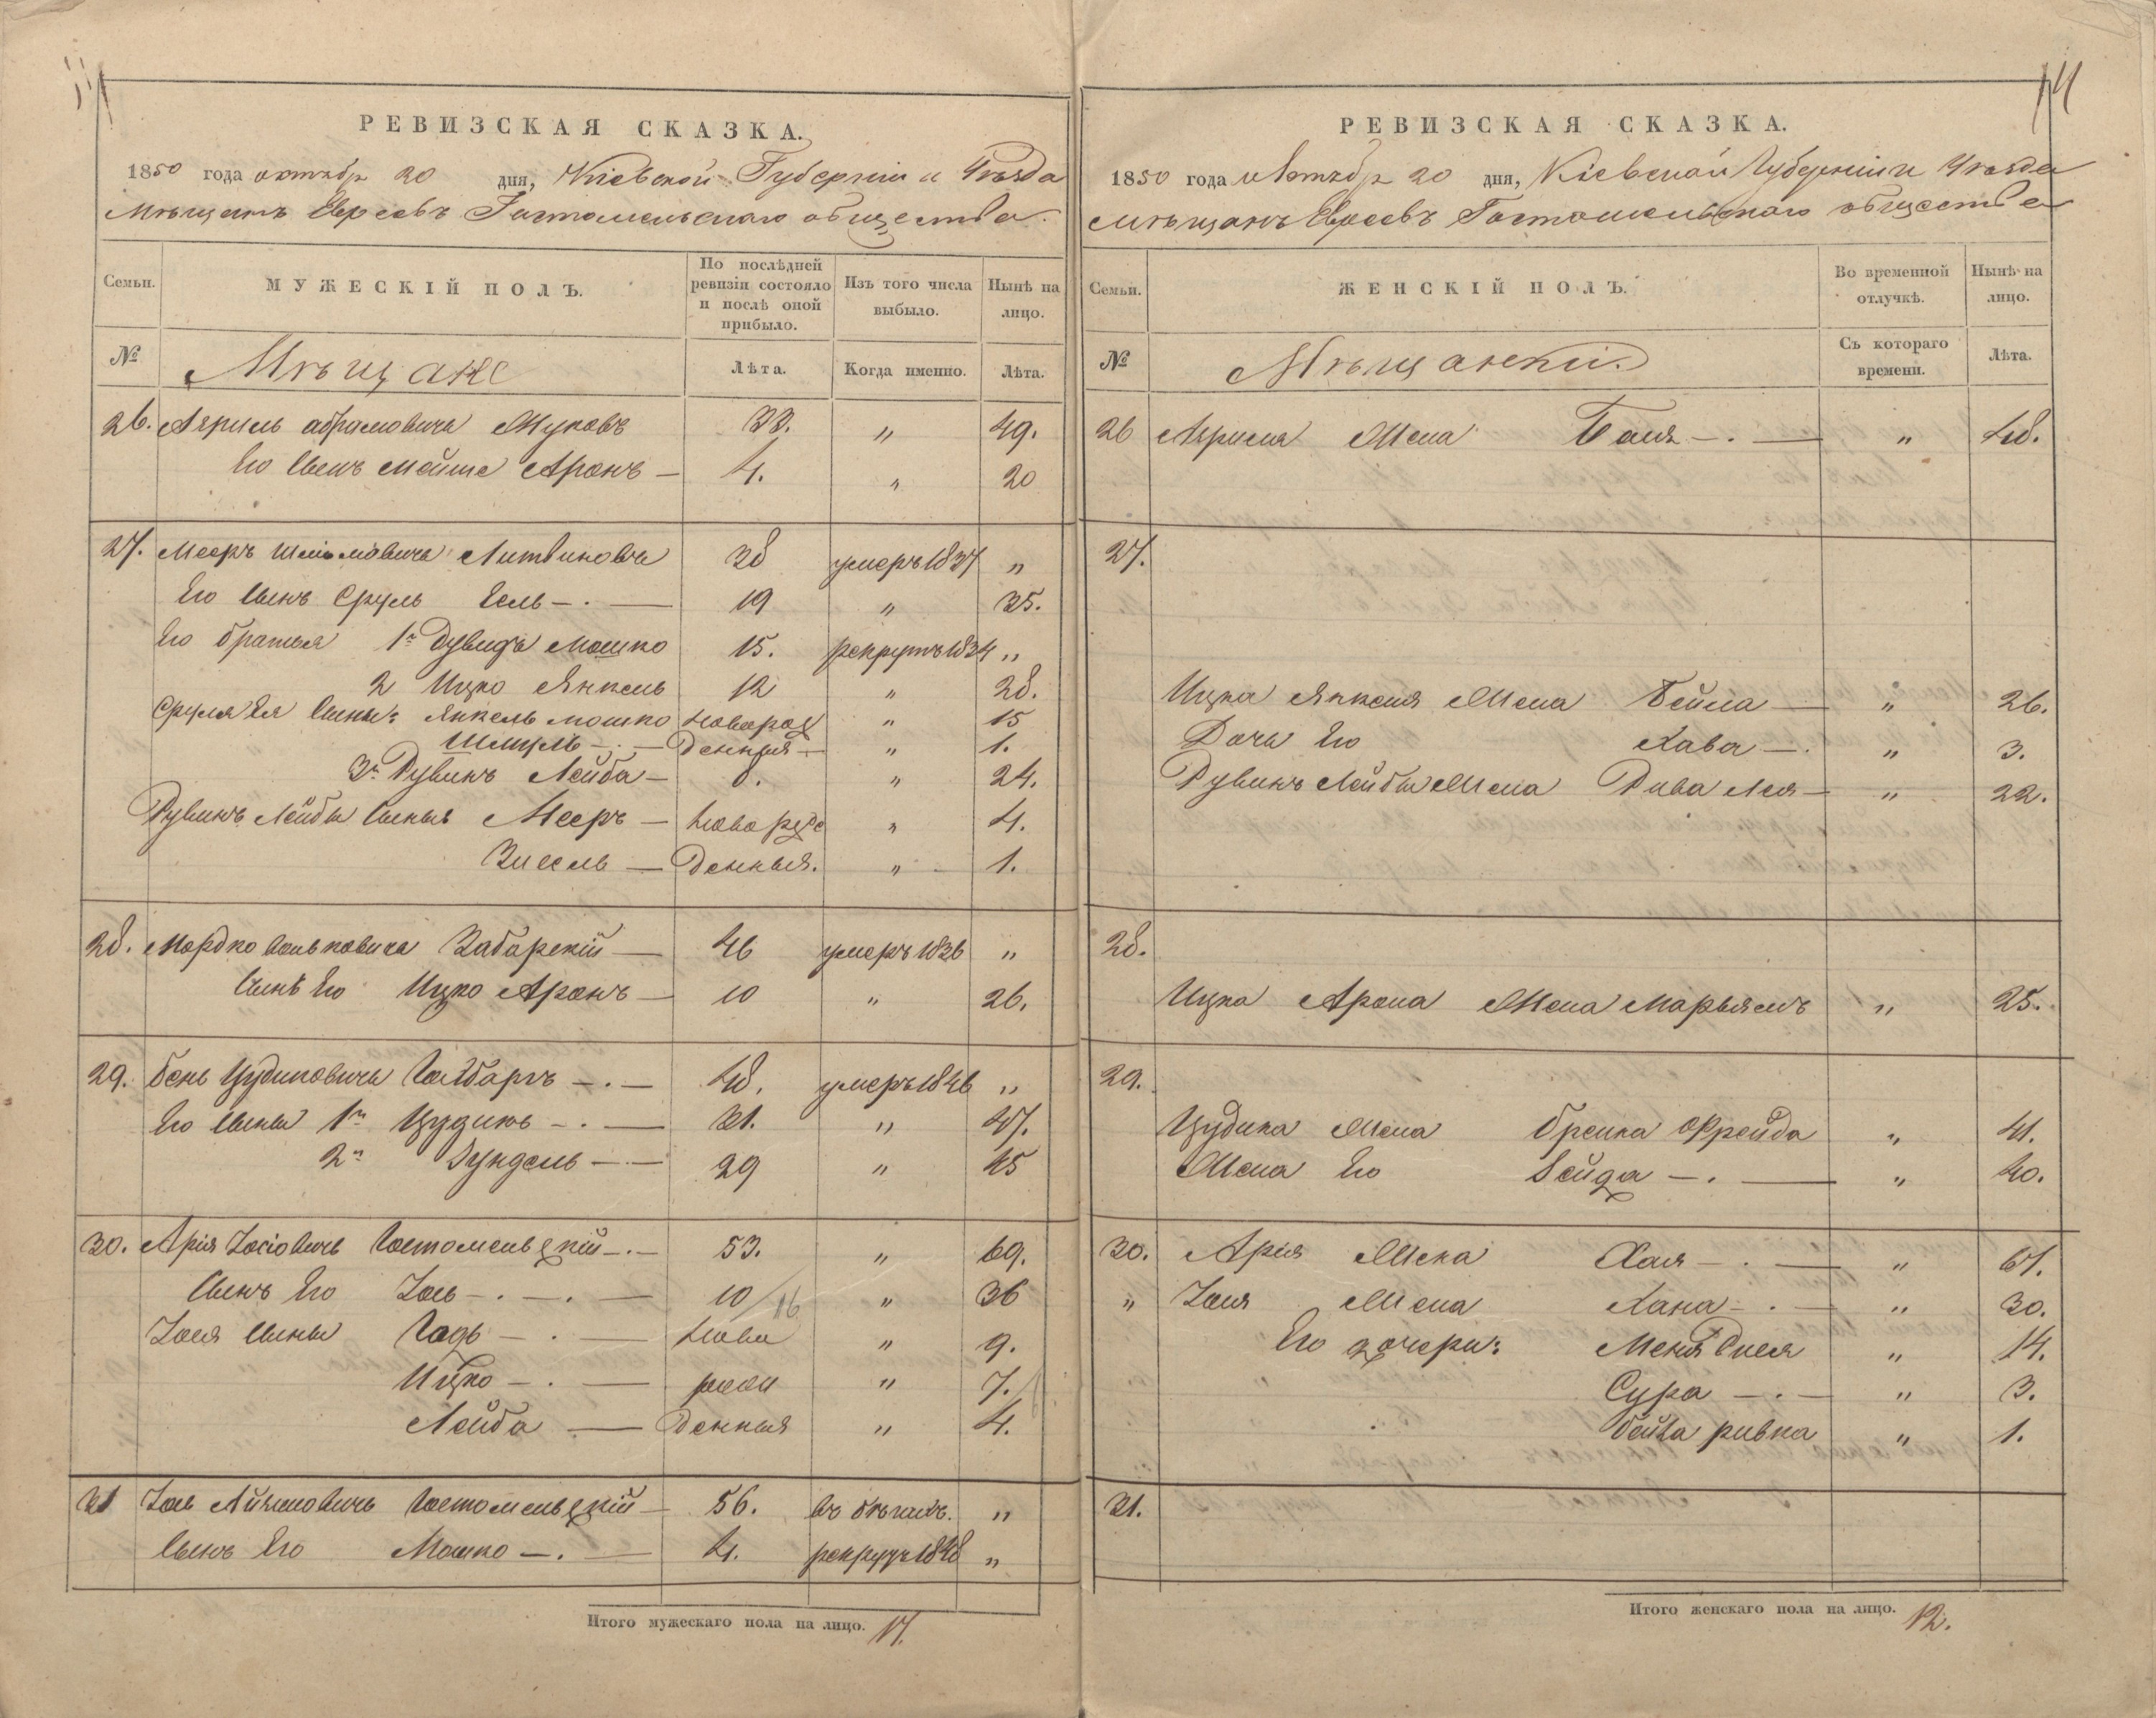 11
РЕВИЗСКАЯ СКАЗКА.
1850 года октябр 20 дня, Кіевской Губерніи и Уѣзда
Мѣщанъ Евреевъ Гостомельскаго общества.
Семьи.
МУЖЕСКІЙ ПОЛЪ.
По послѣдней ревизіи состояло и послѣ оной прибыло.
Изъ того числа выбыло.
Нынѣ на лицо.
№
Мѣщане
Лѣта.
Когда именно.
Лѣта.
26. абрамовичъ 33. " 49.
Его Сынъ Мойше Аронъ — 4. " 20
27. Мееръ Шмілмовичъ Литвиновъ 38 умеръ 1837 "
Его Сынъ Сруль Есль — . — 19 " 35.
Его братья 1й Дувидъ Мошко 15. рекрутъ 1834 "
2 Ицко Янкель 12 " 28.
Сруля Еля Сины: Янкель мошко новорож " 15
Шмуль — . — денныя — " 1.
3й Рувинъ Лейба — 8. " 24.
Рувинъ Лейбы Сыны Мееръ — новорож " 4.
Зисель — денныя. " 1.
28. Мордко Волковичъ Забарскій — 46 умеръ 1836 "
Сынъ Его Ицко Аронъ — 10 " 26.
29. бень Цудиковичъ — . — 48. умеръ 1846 "
Его Сыны 1й Цудикъ — . — 31. " 47.
2й Зундель — . — 29 " 45
30. Арія Іосіовичъ Гостомельскій — . — 53. " 69.
Сынъ Его Іось — . — . — 10/16 " 36
Іося Сыны Гадь — . — ново " 9.
Ицко — . — рож " 7.
Лейба — денныя " 4.
31 Іось Гостомельскій — 56. въ бѣгахъ. "
Сынъ Его Мошко — . — 4. рекрутъ 1848 "
Итого мужескаго пола на лицо. 17.
11
РЕВИЗСКАЯ СКАЗКА.
1850 года октябр 20 дня, Кіевской Губерніи и Уѣзда
мѣщанъ Евреевъ Гостомельскаго общества
Семьи.
ЖЕНСКІЙ ПОЛЪ.
Во временной отлучкѣ.
Нынѣ на лицо.
№
Мѣщанки.
Съ котораго времени.
Лѣта.
26 Жена — . — " 48.
27.
Ицка Янкеля Жена Бейла — " 26.
Дочь Его Хава — . " 3.
Рувинъ Лейбы Жена Рива Лея — " 22.
28.
Ицка Арона Жена Марьямъ " 25.
29.
Цудика Жена Брейна Фрейда " 41.
Жена Его Зейда — . — " 40.
30. Арія Жена Хая — . — " 67.
" Іося Жена Хана — . — " 30.
Его дочери: Меня Сися " 14.
Сура — . — " 3.
бейла ривка " 1.
31.
Итого женскаго пола на лицо. 12.